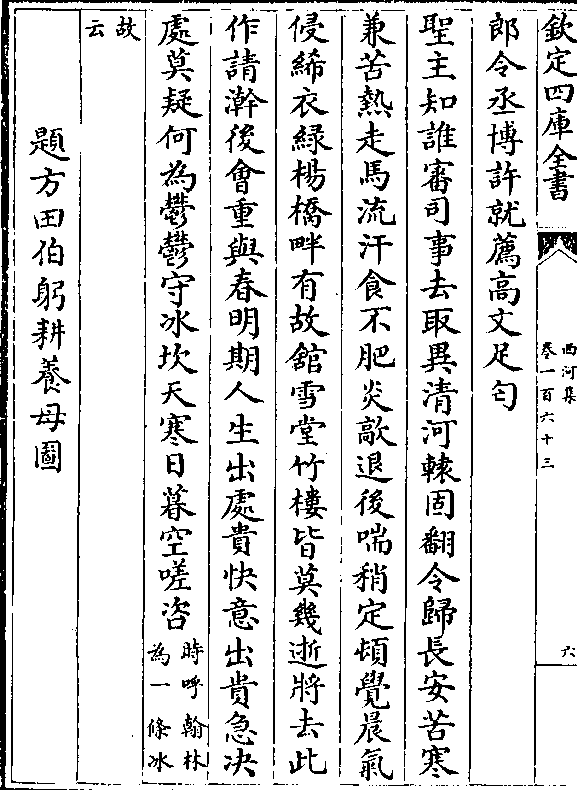 欽定四庫全書
西河集
卷一百六十三
六
郎令丞博許就薦高文足匄
聖主知誰審司事去取異清河轅固翻令歸長安苦寒
兼苦熱走馬流汗食不肥炎歊退後喘稍定頓覺晨氣
侵絺衣緑楊橋畔有故舘雪堂竹樓皆莫幾逝將去此
作請澣後會重與春明期人生出處貴快意出貴急决
處莫疑何為鬱鬱守冰坎天寒日暮空嗟咨時呼翰林
為一條冰
故
云
題方田伯躬耕養母圖